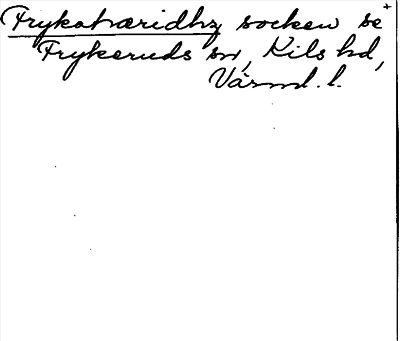 Frykahæridhz socken se
Frykeruds sn, Kils hd,
Värml. l.